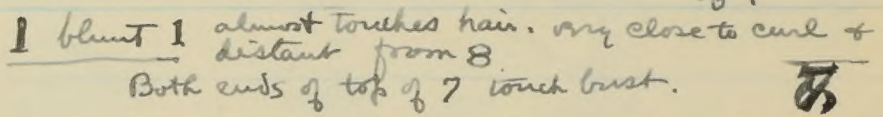 1 blunt 1 almost touches hair. very close to curl &
distant from 8
Both ends of top of 7 touch bust.